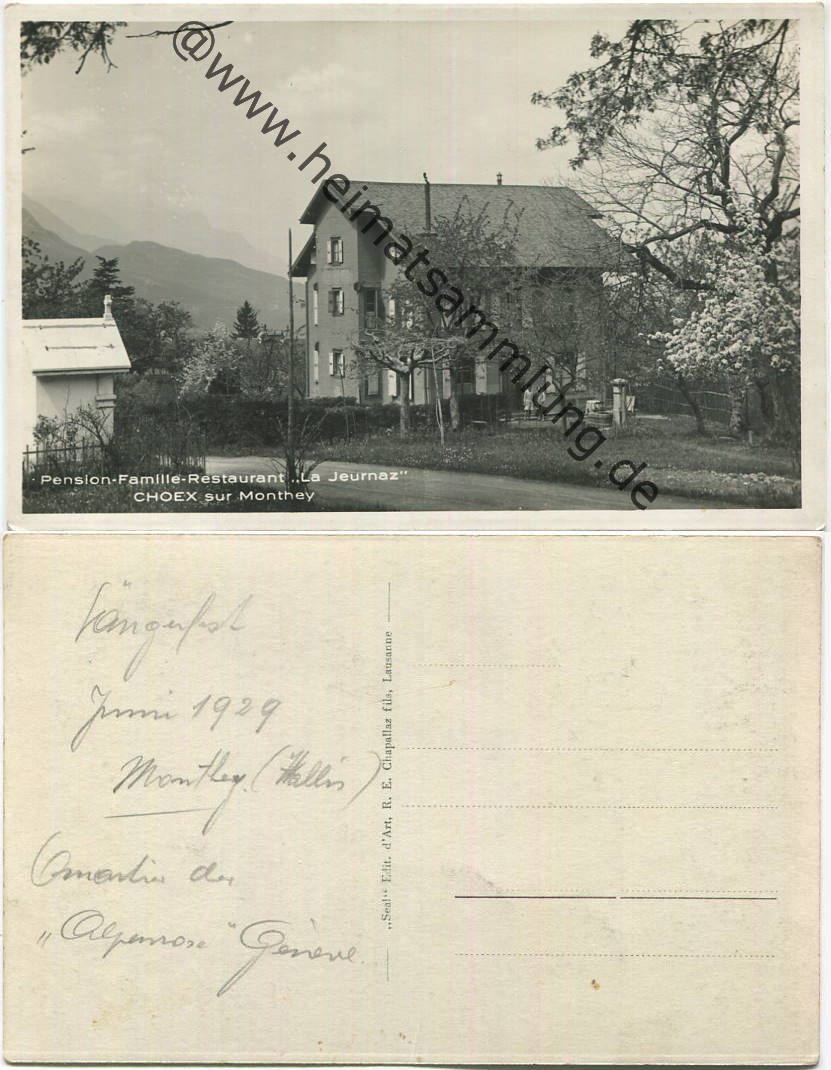 @www.heimatsammlung.de
Pension-Famille-Restaurant „La Jeurnaz"
CHOEX sur Monthey
Sängerfest
Juni 1929
Monthey (Wallis)
Quartier der
„Alpenrose" Genève.
„Seal" Edit. d'Art, R. E. Chapallaz fils, Lausanne